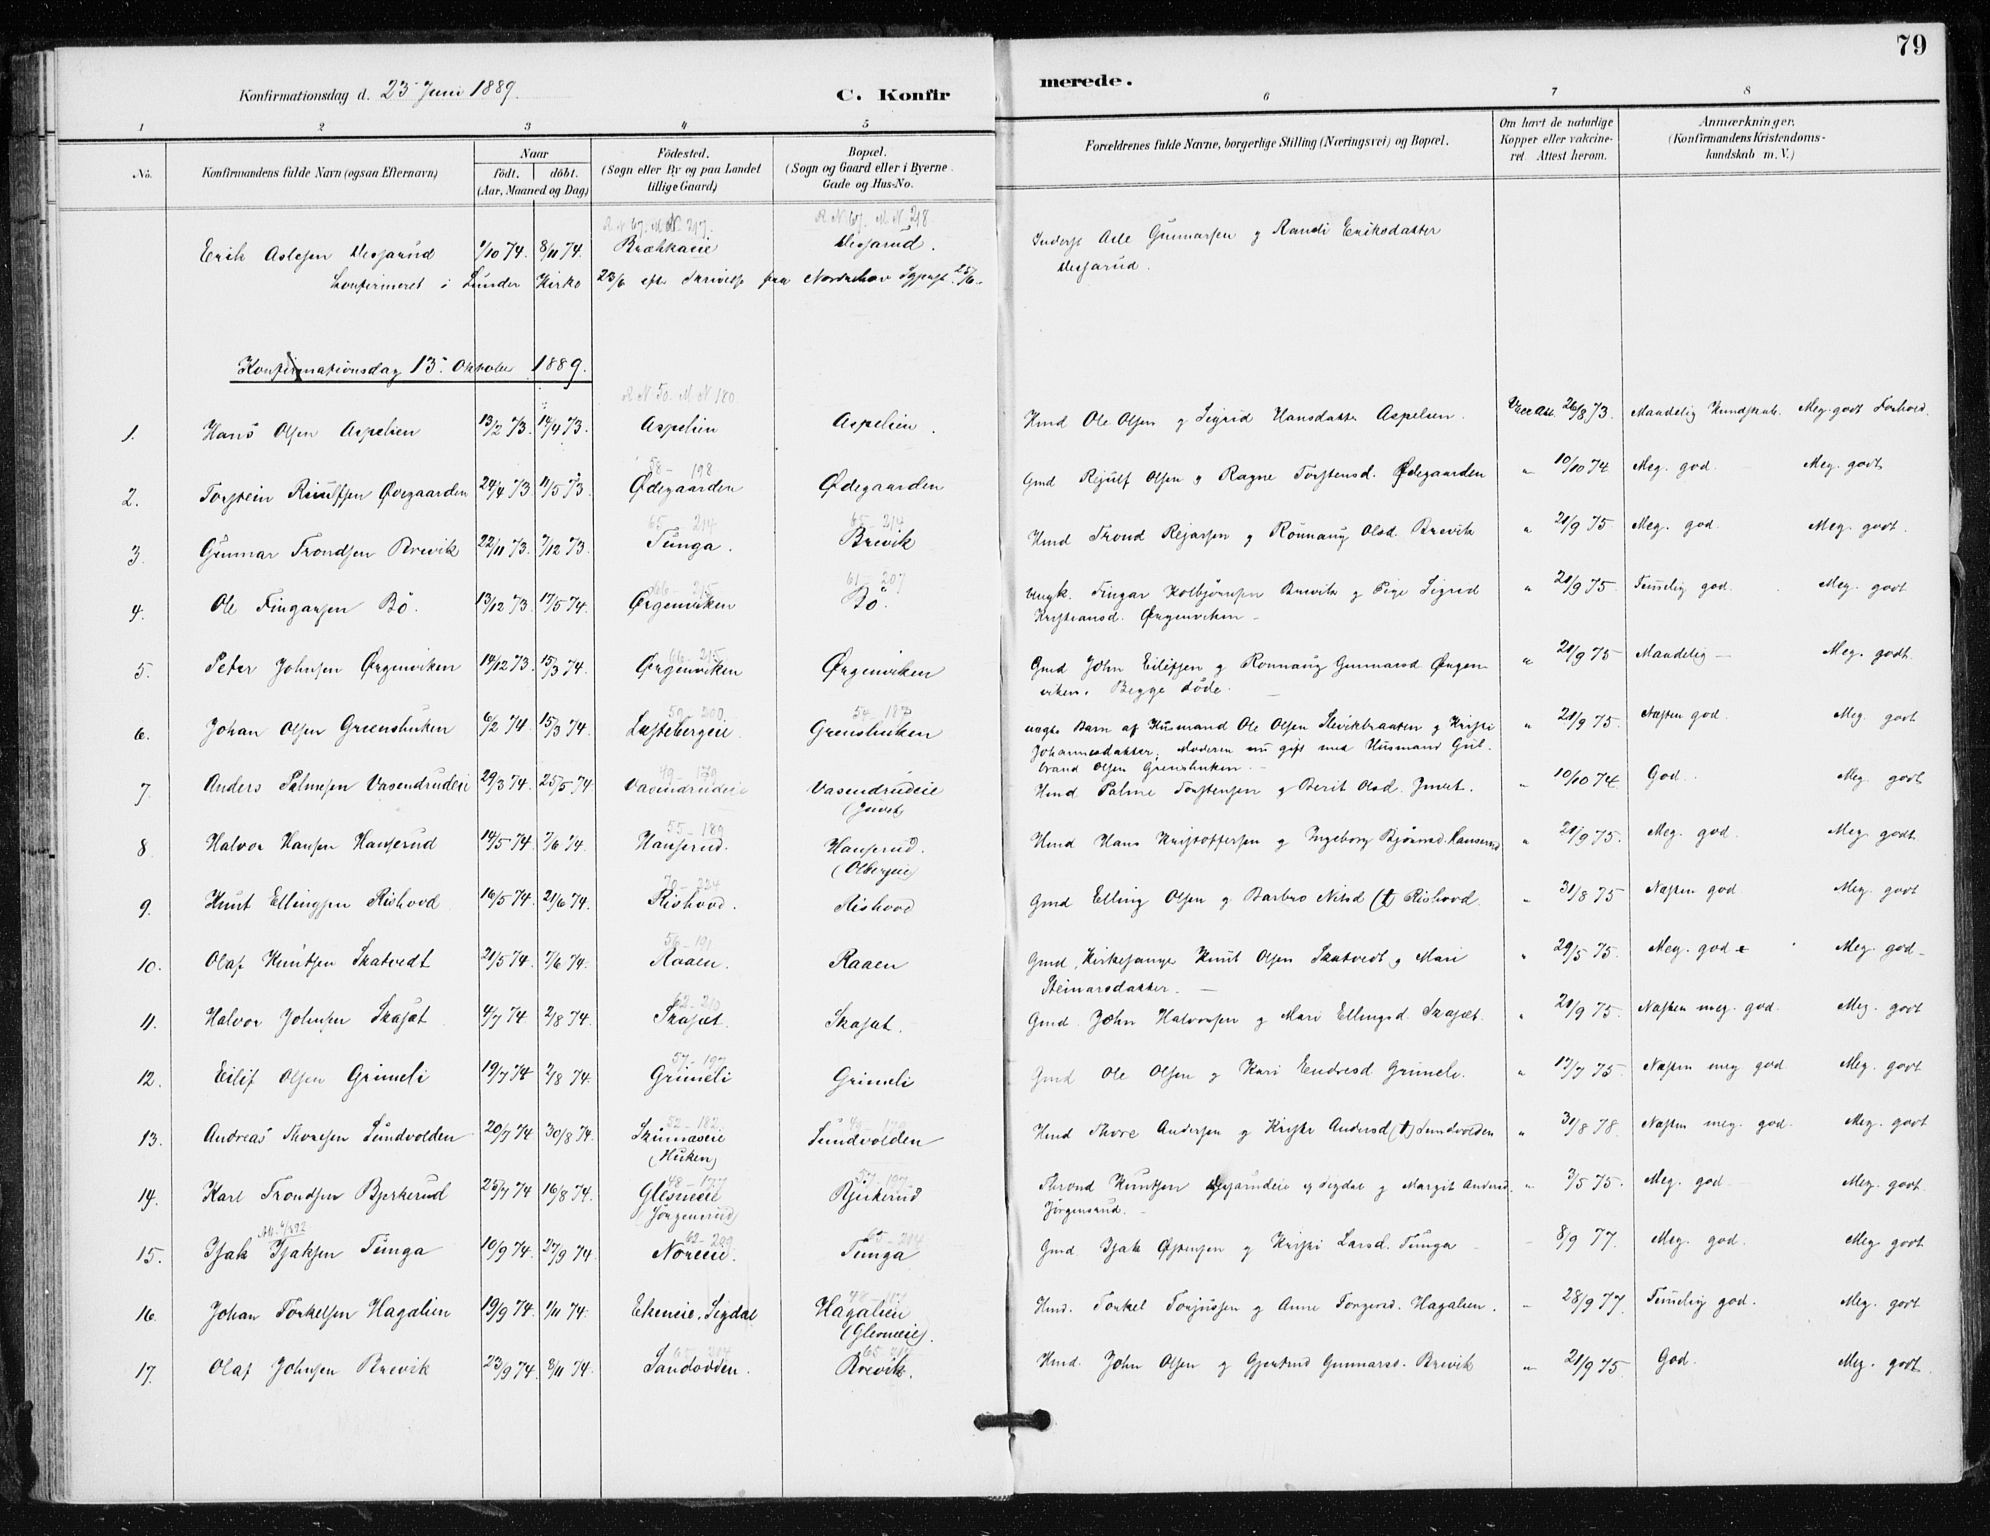 79
Konfirmationsdag d. 23 Juni 1889.
C. Konfirmerede.
1 2 3 4 5 6 7 8
No. Konfirmandens fulde Navn (ogsaa Efternavn) Naar født. døbt. (Aar, Maaned og Dag) Fødested. (Sogn eller By og paa Landet tillige Gaard) Bopæl. (Sogn og Gaard eller i Byerne Gade og Hus-No. Forældrenes fulde Navne, borgerlige Stilling (Næringsvei) og Bopæl. Om havt de naturlige Kopper eller vakcineret. Attest herom. Anmærkninger. (Konfirmandens Kristendomskundskab m. V.)
Erik Aslesen 1/10 74. 8/11 74. Asle Gunnarsen g Randi Eriksdatter
Konfirmeret i Lunder Kirke 23/6 efter Skrivelse fra Norderhov 25/6
Konfirmationsdag 13. Oktober 1889.
R N 50. M N 180
1. Hans Olsen Aspelien 13/2 73. 14/4 73. Aspelien Aspelien. Hmd Ole Olsen g Sigrid Hansdatter Aspelien. Vacc Att. 26/8 73. Maadelig Kundskab. Meg. godt Forhold.
58 - 198
2. Torstein Øvegaarden 24/4 73 11/5 73 Ødegaarden Ødegaarden Gmd Rejulf Olsen g Ragne Torstensd. Ødegaarden " 10/10 74 Meg. god. Meg. godt
65 - 214 65 - 214
3. Gunnar Trondsen Brevik 22/11 73. 7/12 73. Tunga. Brevik Hmd Trond Rejarsen g Rönnaug Olsd. Brevik " 21/9 75. Meg. god. Meg. godt.
66 - 215 61 - 207
4. Ole Fingarsen Bö 13/12 73. 17/5 74. Ørgenviken Bö. Ungk. Fingar Kolbjörnsen Brevik g Pige Sigrid Kristiansd. Ørgenviken - " 21/9 75. Temelig god. Meg. godt
66 - 215
5. Peter Johnsen Ørgenviken 14/12 73. 15/3 74. Ørgenviken Ørgenviken Gmd John Eilifsen g Ronnaug Gunnarsd Ørgenviken. Begge döde. " 21/9 75 Maadelig - Meg. godt.
59 - 200.
6. Johan Olsen Greenshuken 6/2 74. 15/3 74. Grenshuken uægte Barn af Husmand Ole Olsen g Kristi
Johannesdatter. Moderen nu gift med Husmand Gulbrand Olsen Grenshuken. - " 21/9 75. Næsten god. Meg. godt
49 - 179
7. Anders Palmesen Vasendrudeie 29/3 74. 25/5 74. Vasendrudeie Vasendrudeie (Juvet) Hmd Palme Torstensen g Berit Olsd. Juvet. " 10/10 74. God. Meg. godt
55 - 189
8 Halvor Hansen Hanserud 14/5 74. 7/6 74. Hanserud. Hanserud. (Olbergeie) Hmd Hans Kristoffersen g Ingeborg Bjørnsd. Hanserud " 21/9 75. Meg. god. Meg. godt
70 - 224
9. Knut Ellingsen Rishovd 16/5 74. 21/6 74. Rishovd. Rishovd Gmd Elling Olsen g Barbro Nilsd (†) Rishovd. " 31/8 75 Næsten god Meg. godt
56 - 191
10. Olaf Knutsen Skatvedt 21/5 74. 7/6 74. Raaen. Raaen Gmd, Kirkesanger Knut Olsen Skatvedt g Mari Steinarsdatter. - " 29/5 75. Meg. god Meg. god
62 - 210
11. Halvor Johnsen Skasæt 4/7 74. 2/8 74. Skasæt. Skasæt. Gmd. John Halvorsen g Mari Ellingsd Skasæt. " 21/9 75. Næsten meg. god. Meg. godt
57 - 197
12. Eilif Olsen Grimeli 19/7 74 2/8 74. Grimeli Grimeli Gmd Ole Olsen g Kari Endresd Grimeli. " 12/7 75. Næsten meg god Meg. godt
52 - 182.
13. Andreas Thoresen Sundvolden 20/7 74 30/8 74. (Huken) Sundvolden Hmd Thore Andersen g Kristi Andersd (†) Sundvolden " 31/8 78. Næsten meg. god. Meg. godt
48 - 177 57 - 197
14. Karl Trondsen Bjerkerud 25/7 74 16/8 74. Glesneeie (Jörgensrud) Bjerkerud Thrond Knutsen g Margit Andersd. Jörgensrud. - " 3/5 75. Meg. god. Meg. godt.
62 - 209 65 - 214
15. Isak Isaksen Tunga 10/9 74. 27/9 74. Noreeie. Tunga Gmd Isak Østensen g Kristi Larsd. Tunga - 8/9 77. Meg. god. Meg godt
16. Johan Torkelsen Hagalien 19/9 74. 1/11 74. Ekeneie, Sigdal Hagalien (Glesneeie). Hmd. Torkel Torjussen g Anne Torgersd. Hagalien. " 28/9 77. Temelig god. Meg. godt
65 - 214 65 214
17. Olaf Johnsen Brevik 23/9 74. 8/11 74. Sandodden. Brevik. Hmd. John Olsen g Gjertrud Gunnarsd. Brevik " 21/9 75 God. Meg. godt